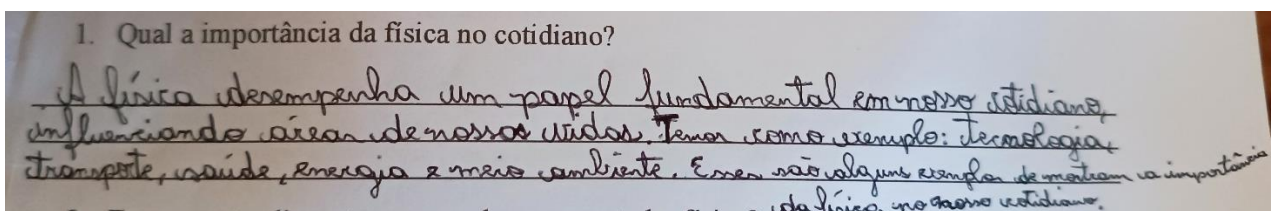 1. Qual a importância da física no cotidiano?
A física desempenha um papel fundamental em nosso cotidiano,
influenciando áreas de nossas vidas. Temos como exemplo: Tecnologia,
transporte, saúde, energia e meio ambiente. Esses são alguns exemplos de mostram a importância
da física no nosso cotidiano.